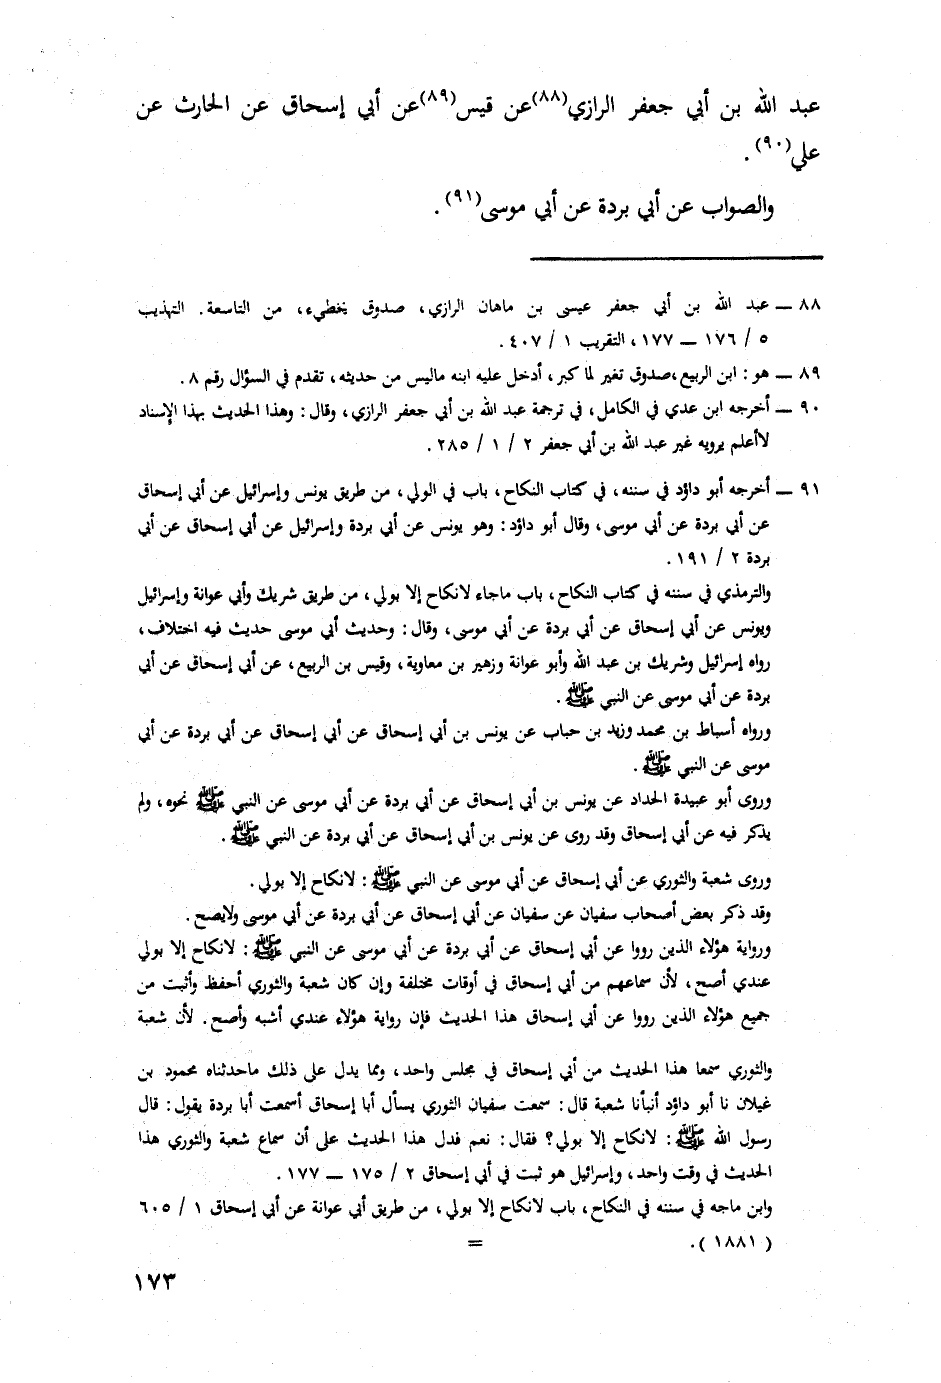 عبد الله بن أبي جعفر الرازي(٨٨)عن قيس(٨٩)عن أبي إسحاق عن الحارث عن
علي(٩٠).
والصواب عن أبي بردة عن أبي موسى(٩١).
٨٨ ــ عبد الله بن أبي جعفر عيسى بن ماهان الرازي، صدوق يخطيء، من التاسعة. التهذيب
٥ / ١٧٦ ــ ١٧٧، التقريب ١ / ٤٠٧.
٨٩ ــ هو: ابن الربيع،صدوق تغير لما كبر، أدخل عليه ابنه ماليس من حديثه، تقدم في السؤال رقم ٨.
٩٠ ــ أخرجه ابن عدي في الكامل، في ترجمة عبد الله بن أبي جعفر الرازي، وقال: وهذا الحديث بهذا الإسناد
لاأعلم يرويه غير عبد الله بن أبي جعفر ٢ / ١ / ٢٨٥.
٩١ ــ أخرجه أبو داؤد في سننه، في كتاب النكاح، باب في الولي، من طريق يونس وإسرائيل عن أبي إسحاق
عن أبي بردة عن أبي موسى، وقال أبو داؤد: وهو يونس عن أبي بردة وإسرائيل عن أبي إسحاق عن أبي
بردة ٢ / ١٩١.
والترمذي في سننه في كتاب النكاح، باب ماجاء لانكاح إلا بولي، من طريق شريك وأبي عوانة وإسرائيل
ويونس عن أبي إسحاق عن أبي بردة عن أبي موسى، وقال: وحديث أبي موسى حديث فيه اختلاف،
رواه إسرائيل وشريك بن عبد الله وأبو عوانة وزهير بن معاوية، وقيس بن الربيع، عن أبي إسحاق عن أبي
بردة عن أبي موسى عن النبي ﷺ.
ورواه أسباط بن محمد وزيد بن حباب عن يونس بن أبي إسحاق عن أبي إسحاق عن أبي بردة عن أبي
موسى عن النبي ﷺ.
وروى أبو عبيدة الحداد عن يونس بن أبي إسحاق عن أبي بردة عن أبي موسى عن النبي ﷺ نحوه، ولم
يذكر فيه عن أبي إسحاق وقد روى عن يونس بن أبي إسحاق عن أبي بردة عن النبي ﷺ.
وروى شعبة والثوري عن أبي إسحاق عن أبي موسى عن النبي ﷺ: لانكاح إلا بولي.
وقد ذكر بعض أصحاب سفيان عن سفيان عن أبي إسحاق عن أبي بردة عن أبي موسى ولايصح.
ورواية هؤلاء الذين رووا عن أبي إسحاق عن أبي بردة عن أبي موسى عن النبي ﷺ: لانكاح إلا بولي
عندي أصح، لأن سماعهم من أبي إسحاق في أوقات مختلفة وإن كان شعبة والثوري أحفظ وأثبت من
جميع هؤلاء الذين رووا عن أبي إسحاق هذا الحديث فإن رواية هؤلاء عندي أشبه وأصح. لأن شعبة
والثوري سمعا هذا الحديث من أبي إسحاق في مجلس واحد، ومما يدل على ذلك ماحدثناه محمود بن
غيلان نا أبو داؤد أنبأنا شعبة قال: سمعت سفيان الثوري يسأل أبا إسحاق أسمعت أبا بردة يقول: قال
رسول الله ﷺ: لانكاح إلا بولي؟ فقال: نعم فدل هذا الحديث على أن سماع شعبة والثوري هذا
الحديث في وقت واحد، وإسرائيل هو ثبت في أبي إسحاق ٢ / ١٧٥ ــ ١٧٧.
وابن ماجه في سننه في النكاح، باب لانكاح إلا بولي، من طريق أبي عوانة عن أبي إسحاق ١ / ٦٠٥
(١٨٨١). =
١٧٣